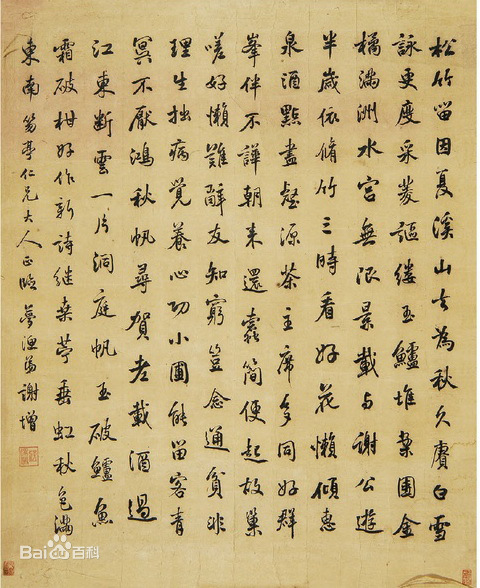 松竹留因夏溪山去為秋久賡白雪
詠更度采菱謳縷玉鱸堆案團金
橘滿洲水宮無限景載与謝公遊
半歲依脩竹三時看好花懶傾惠
泉酒點盡壑源茶主席多同好群
峯伴不譁朝来還蠹簡便起故巢
嗟好懶難辭友知窮豈念通貧非
理生拙病覺養心功小圃能留客青
冥不厭鴻秋帆尋賀老載酒過
江東斷雲一片洞庭帆玉破鱸魚
霜破柑好作新詩继桑苧垂虹秋色滿
東南 笏亭仁兄大人正臨 夢漁弟謝增
Bai百科